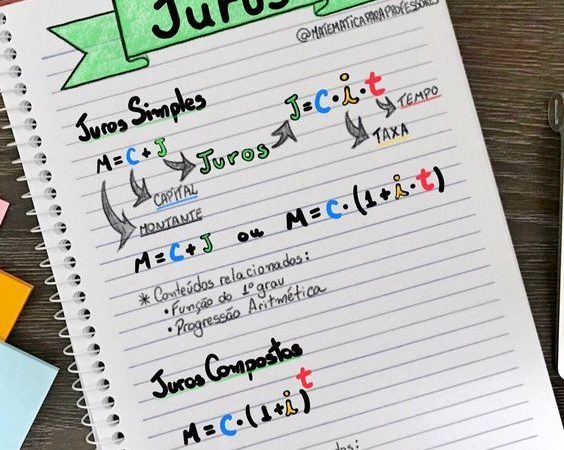 Juros
@MATEMATICAPARAPROFESSORES
Juros Simples
M = C + J
Juros
J = C · i · t
TEMPO
TAXA
CAPITAL
MONTANTE
M = C + J ou M = C · (1 + i · t)
* Conteúdos relacionados:
· Função do 1º grau
· Progressão Aritmética
Juros Compostos
M = C · (1 + i)^t